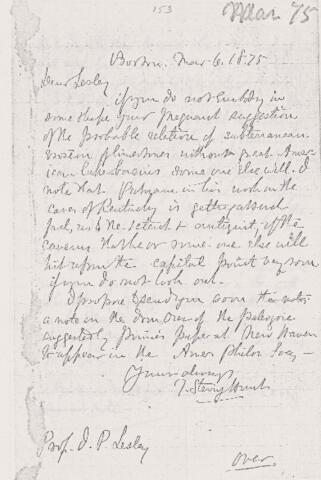 153
Mar 75
Boston. Mar 6. 1875
Dear Lesley
if you do not embody in
some shape your pregnant suggestion
of the probable relation of subterranean
erosion of limestones without great Amer
ican lake basins some one else will. I
note that Putnam in his work on the
caves of Kentucky is getting at such
facts, as to the extent & antiquity of the
caverns that he or some one else will
hit upon the capital point very soon
if you do not look out.
I propose to send you soon the notes
a note on the of the paleozoic
suggested by paper at New Haven
to appear in the Amer Philos Soc
Yours always
T. Sterry Hunt
Prof. J. P. Lesley
over.